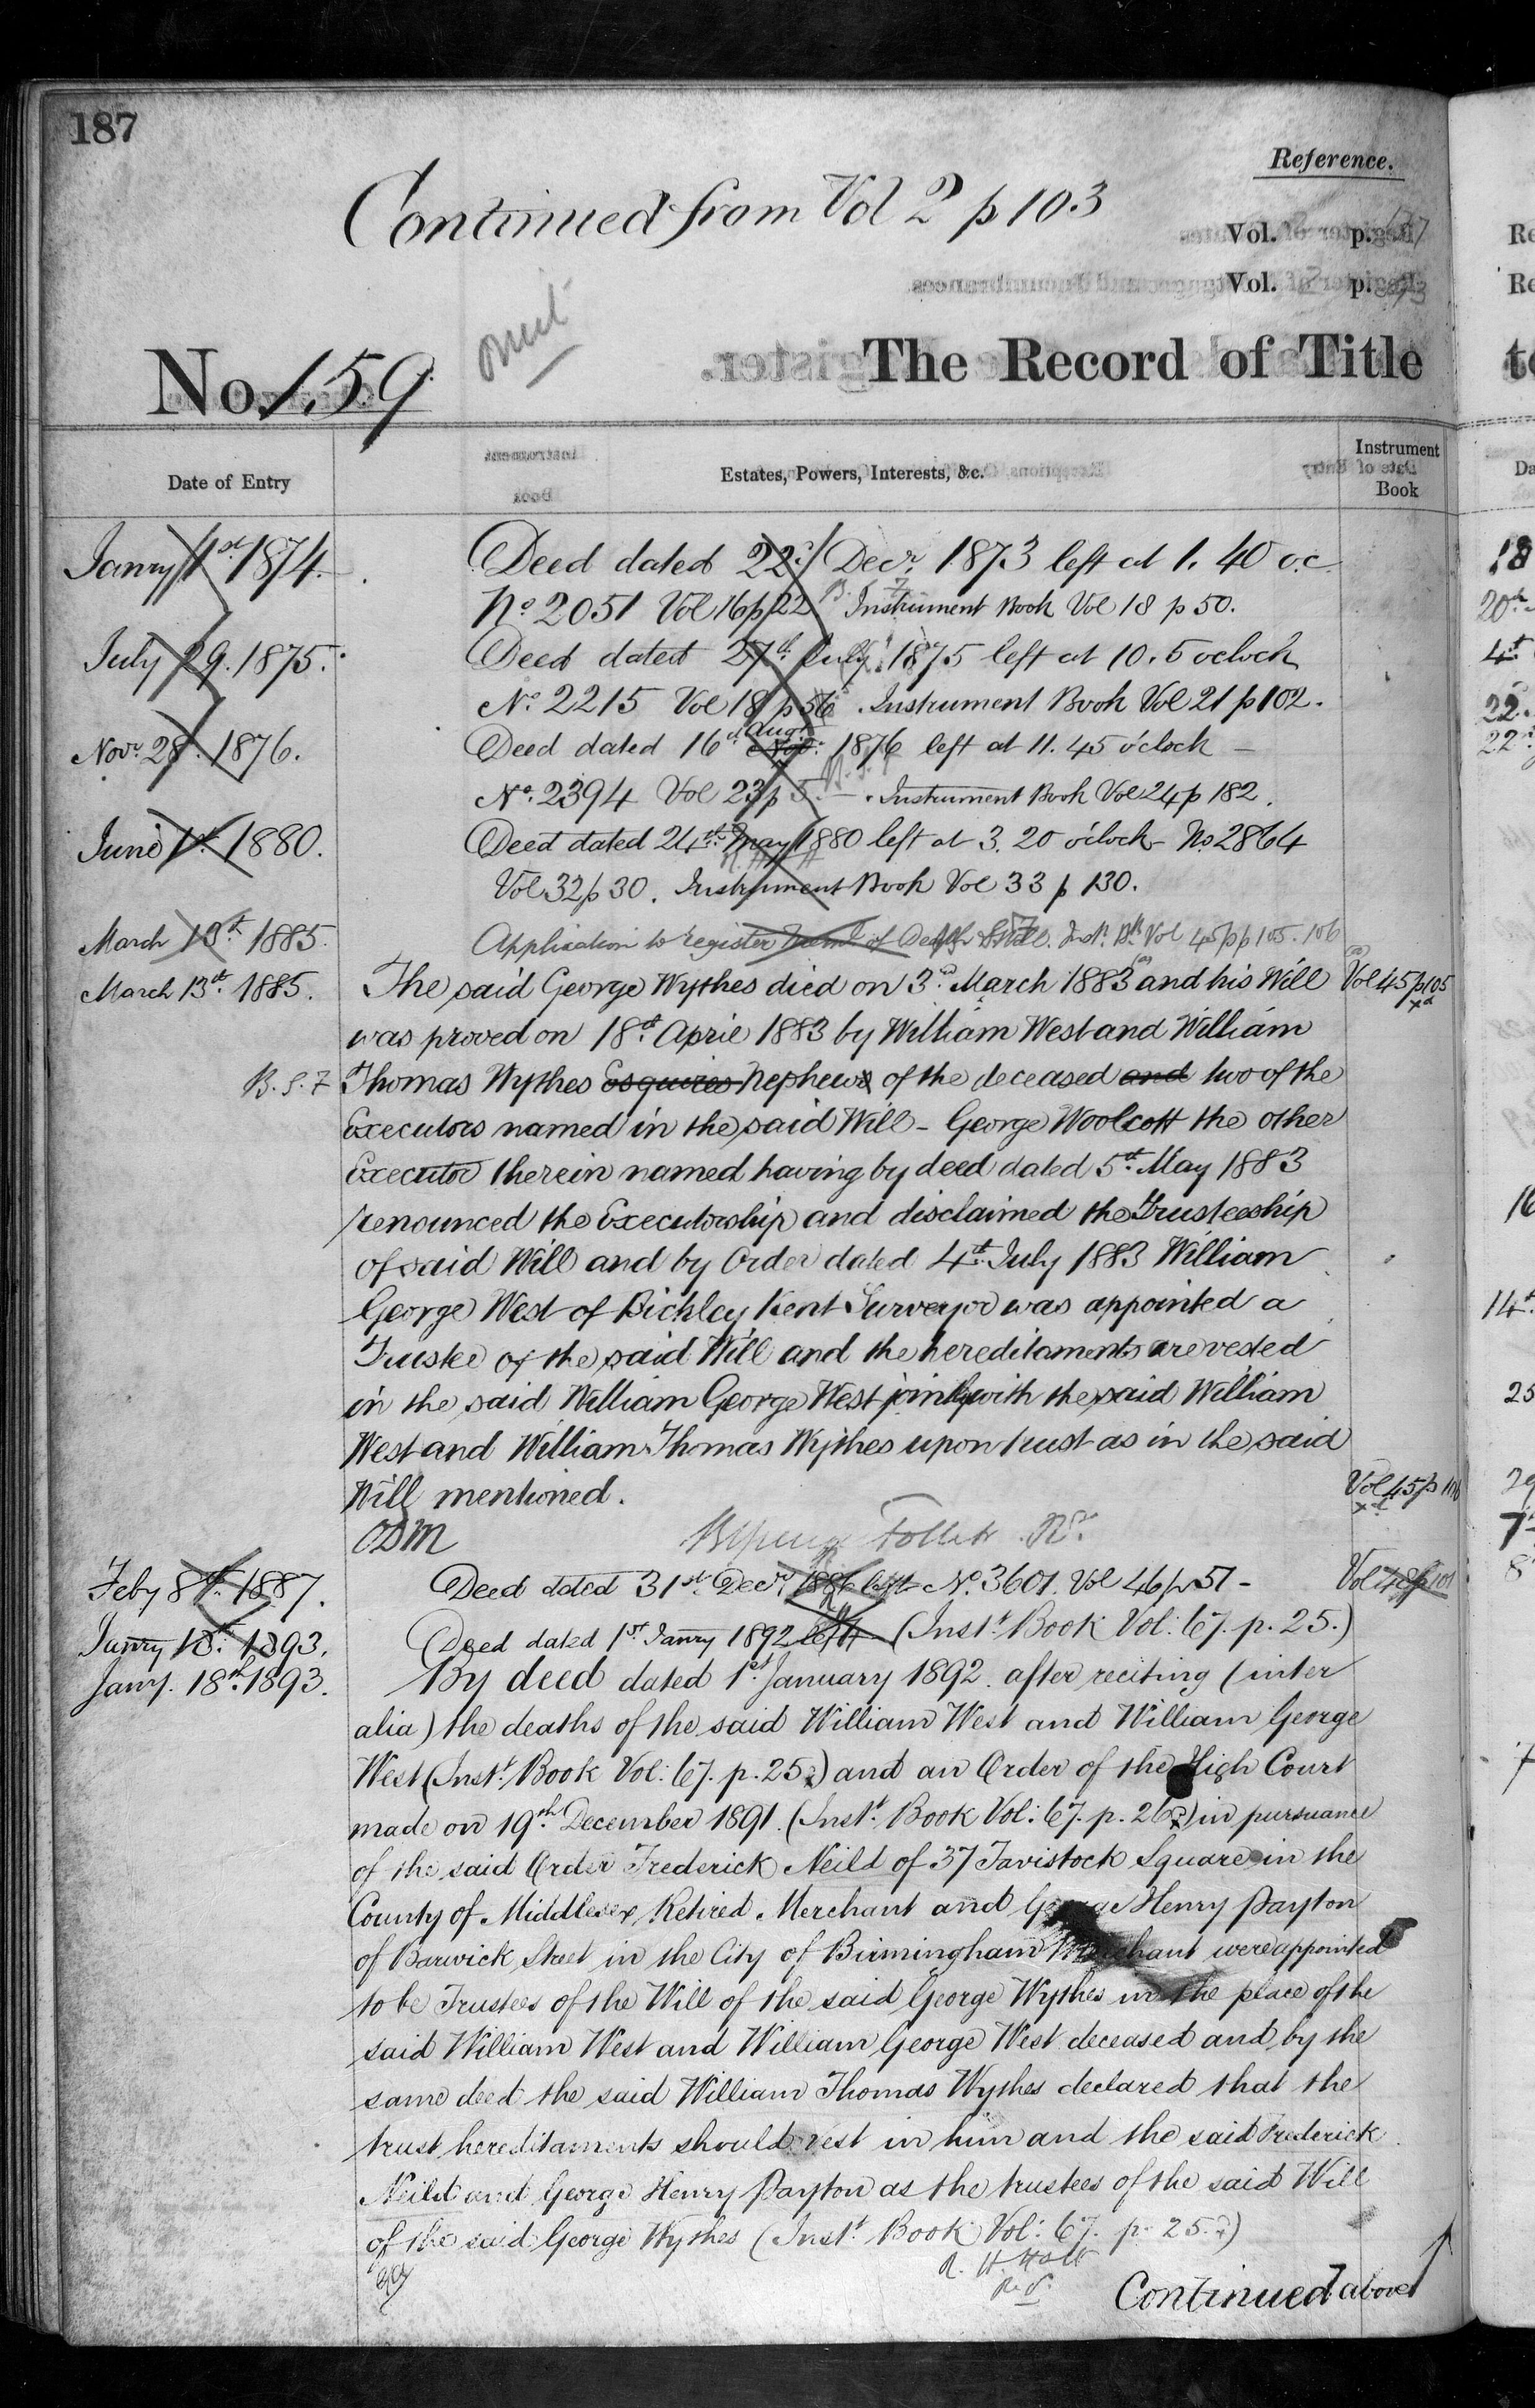 187
Reference.
Continued from Vol 2 p 103
Vol. p.
Vol. p.
No. 159
The Record of Title
Date of Entry
Estates, Powers, Interests, &c.
Instrument Book
Janry 1st 1874. Deed dated 22d Decr. 1873 left at 1.40 o.c.
No. 2051 Vol 16 p 22 Instrument Book Vol 18 p 50.
July 29. 1875. Deed dated 27th July 1875 left at 10.5 oclock
No. 2215 Vol 18 p 56 Instrument Book Vol 21 p 102.
Novr. 28. 1876. Deed dated 16th Augt 1876 left at 11.45 o'clock —
No. 2394 Vol 23 p 5. — Instrument Book Vol 24 p 182.
June 1st 1880. Deed dated 24th May 1880 left at 3.20 o'clock - No 2864
Vol 32 p 30. Instrument Book Vol 33 p 130.
March 13th 1885. Application to register of Death Instt. Bk Vol 45 pp 105. 106
March 13th 1885. The said George Wythes died on 3d March 1883 and his Will Vol 45 p 105
was proved on 18th April 1883 by William West and William
B.S.7 Thomas Wythes Esquires Nephews of the deceased and two of the
Executors named in the said Will - George Woolcott the other
Executor therein named having by deed dated 5th May 1883
renounced the Executorship and disclaimed the Trusteeship
of said Will and by Order dated 4th July 1883 William
George West of Bickley Kent Surveyor was appointed a
Trustee of the said Will and the hereditaments are vested
in the said William George West jointly with the said William
West and William Thomas Wythes upon trust as in the said
Will mentioned. Vol 45 p 106
ODM
Feby 8th 1887. Deed dated 31st Decr. 1886 left No. 3601. Vol 46 p 51 - Vol 48 p 101
Janry 18th 1893. Deed dated 1st Janry 1892 left (Instt. Book Vol: 67. p. 25.)
Jany. 18th 1893. By deed dated 1st January 1892 after reciting (inter
alia) the deaths of the said William West and William George
West (Instt. Book Vol: 67. p. 25) and an Order of the High Court
made on 19th December 1891. (Instt. Book Vol: 67. p. 26) in pursuance
of the said Order Frederick Neild of 37 Tavistock Square in the
County of Middlesex Retired Merchant and George Henry Payton
of Barwick Street in the City of Birmingham Merchant were appointed
to be Trustees of the Will of the said George Wythes in the place of the
said William West and William George West deceased and by the
same deed the said William Thomas Wythes declared that the
trust hereditaments should vest in him and the said Frederick
Neild and George Henry Payton as the trustees of the said Will
of the said George Wythes (Instt. Book Vol: 67. p. 25.)
R. H. Holt
Continued above